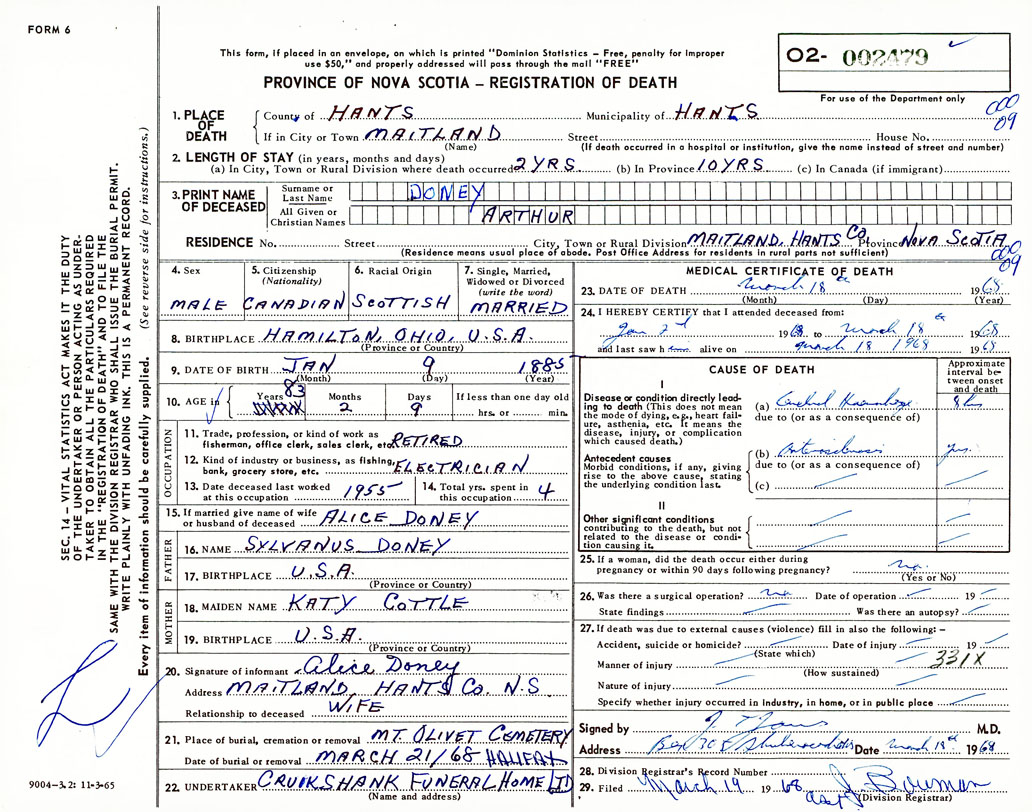 FORM 6
This form, if placed in an envelope, on which is printed "Dominion Statistics – Free, penalty for improper
use $50," and properly addressed will pass through the mail "FREE"
PROVINCE OF NOVA SCOTIA – REGISTRATION OF DEATH
02- 002479
For use of the Department only
000
09
1. PLACE OF DEATH
County of HANTS Municipality of HANTS
If in City or Town MAITLAND Street House No.
(Name) (If death occurred in a hospital or institution, give the name instead of street and number)
2. LENGTH OF STAY (in years, months and days)
(a) In City, Town or Rural Division where death occurred 2 YRS. (b) In Province 10 YRS. (c) In Canada (if immigrant)
3. PRINT NAME OF DECEASED
Surname or Last Name DONEY
All Given or Christian Names ARTHUR
RESIDENCE No. Street City, Town or Rural Division MAITLAND, HANTS Co. Province NOVA SCOTIA
(Residence means usual place of abode. Post Office Address for residents in rural parts not sufficient)
000
09
4. Sex MALE
5. Citizenship (Nationality) CANADIAN
6. Racial Origin SCOTTISH
7. Single, Married, Widowed or Divorced (write the word) MARRIED
8. BIRTHPLACE HAMILTON, OHIO, U.S.A.
(Province or Country)
9. DATE OF BIRTH JAN 9 1885
(Month) (Day) (Year)
10. AGE in Years 83 Months 2 Days 9 If less than one day old hrs. or min.
OCCUPATION
11. Trade, profession, or kind of work as
fisherman, office clerk, sales clerk, etc. RETIRED
12. Kind of industry or business, as fishing,
bank, grocery store, etc. ELECTRICIAN
13. Date deceased last worked
at this occupation 1955
14. Total yrs. spent in
this occupation 4
15. If married give name of wife
or husband of deceased ALICE DONEY
FATHER
16. NAME SYLVANUS DONEY
17. BIRTHPLACE U.S.A.
(Province or Country)
MOTHER
18. MAIDEN NAME KATY COTTLE
19. BIRTHPLACE U.S.A.
(Province or Country)
20. Signature of informant Alice Doney
Address MAITLAND, HANTS Co. N.S.
Relationship to deceased WIFE
21. Place of burial, cremation or removal MT. OLIVET CEMETERY
Date of burial or removal MARCH 21/68 HALIFAX
22. UNDERTAKER CRUIKSHANK FUNERAL HOME LTD
(Name and address)
MEDICAL CERTIFICATE OF DEATH
23. DATE OF DEATH March 18th 1968
(Month) (Day) (Year)
24. I HEREBY CERTIFY that I attended deceased from:
Jan 2nd 1968 to March 18th 1968
and last saw him alive on March 18 1968 1968
CAUSE OF DEATH
Approximate interval between onset and death
I
Disease or condition directly leading
to death (This does not
mean the mode of dying, e.g., heart failure,
asthenia, etc. It means the
disease, injury, or complication
which caused death.)
(a) Cerebral Hemorrhage 8 hrs
due to (or as a consequence of)
Antecedent causes
Morbid conditions, if any, giving
rise to the above cause, stating
the underlying condition last.
(b) Arteriosclerosis yrs.
due to (or as a consequence of)
(c)
II
Other significant conditions
contributing to the death, but not
related to the disease or condition
causing it.
25. If a woman, did the death occur either during
pregnancy or within 90 days following pregnancy? no.
(Yes or No)
26. Was there a surgical operation? no Date of operation 19
State findings Was there an autopsy?
27. If death was due to external causes (violence) fill in also the following: –
Accident, suicide or homicide? Date of injury 19
(State which)
331X
Manner of injury
(How sustained)
Nature of injury
Specify whether injury occurred in Industry, in home, or in public place
Signed by M.D.
Address Box 30 Date March 18th 1968
28. Division Registrar's Record Number
29. Filed March 19 1968 J. Bowman
(Division Registrar)
SEC. 14 – VITAL STATISTICS ACT MAKES IT THE DUTY
OF THE UNDERTAKER OR PERSON ACTING AS UNDERTAKER
TO OBTAIN ALL THE PARTICULARS REQUIRED
IN THE "REGISTRATION OF DEATH" AND TO FILE THE
SAME WITH THE DIVISION REGISTRAR WHO SHALL ISSUE THE BURIAL PERMIT.
WRITE PLAINLY WITH UNFADING INK. THIS IS A PERMANENT RECORD.
Every item of information should be carefully supplied. (See reverse side for instructions.)
9004-3.2: 11-3-65